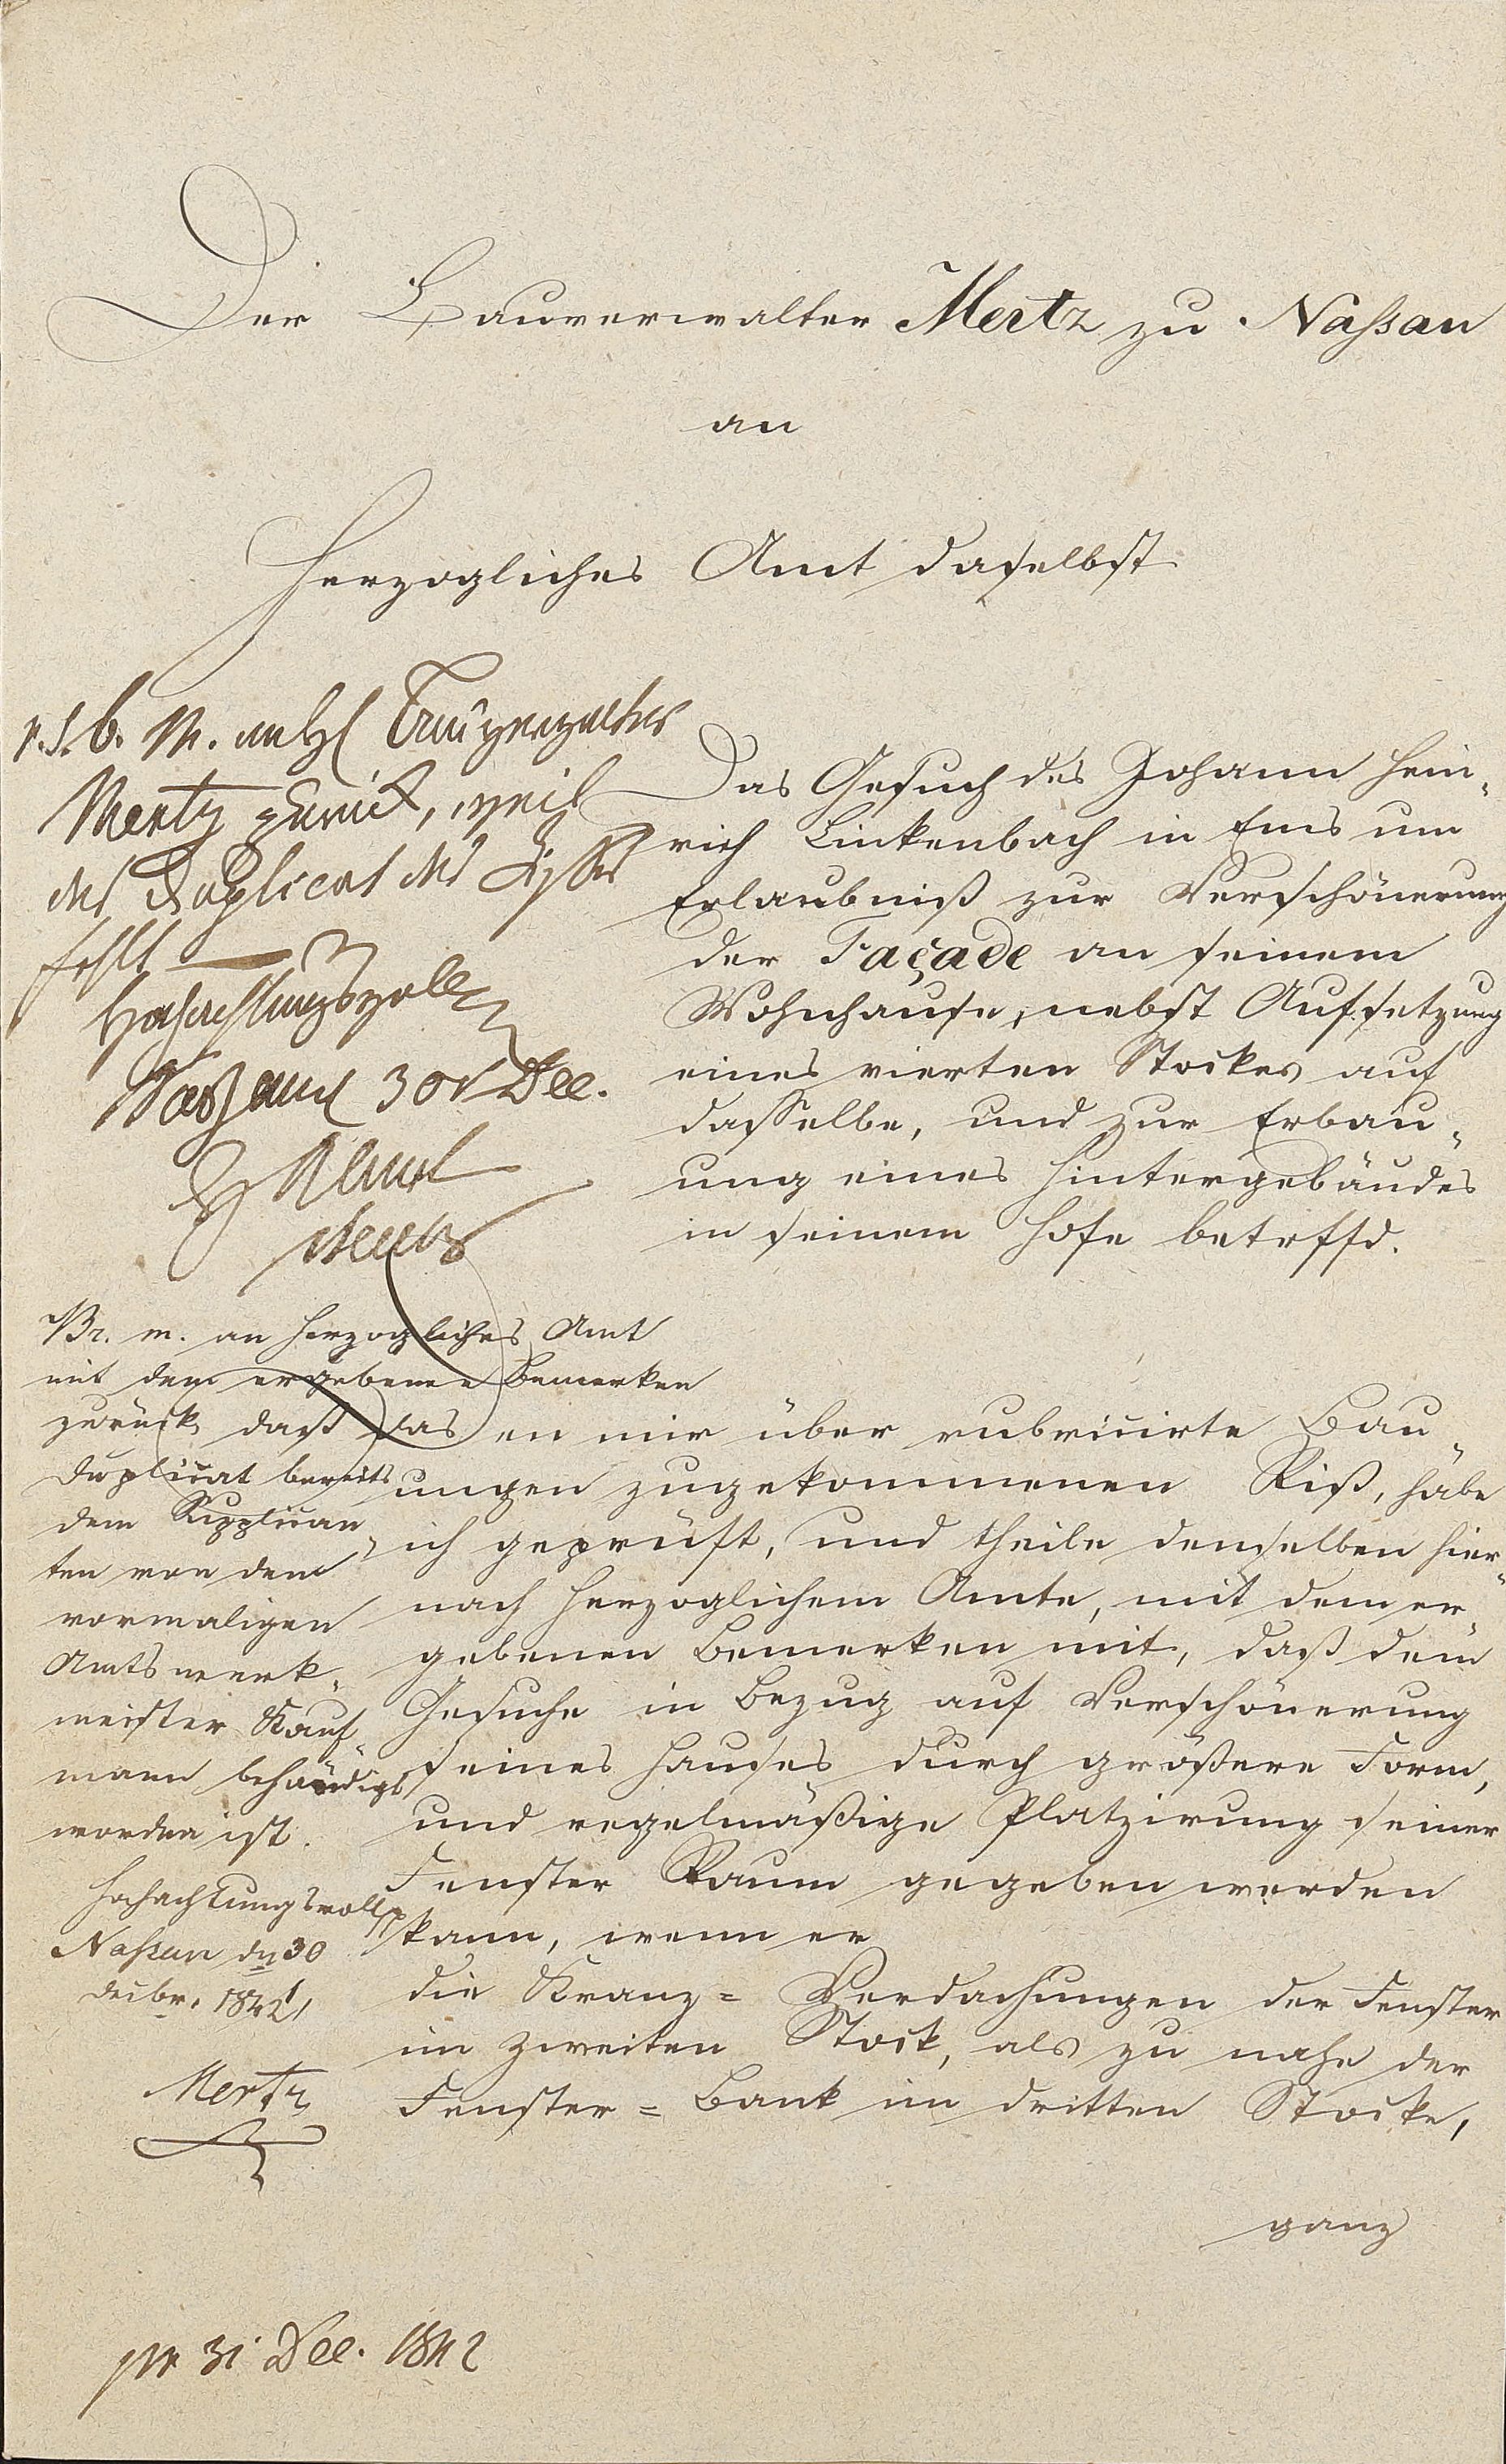 Der Bauverwalter Mertz zu Naßau
an
Herzogliches Amt daselbst
b. M. an H Bauverwalter
Mertz zurück, weil
das Duplicat des Risses
fehlt
Hochachtungsvoll
Naßau 30 Dec.
H Amt
Das Gesuch des Johann Hein„
rich Linkenbach in Ems um
Erlaubniß zur Verschönerung
der Façade an seinem
Wohnhause, nebst Aufsetzung
eines vierten Stockes auf
dasselbe, und zur Erbau„
ung eines Hintergebäudes
in seinem Hofe betrffd.
Br. m. an Herzogliches Amt
mit dem ergebenen Bemerken
zurück, daß das
Duplicat bereits
dem Supplican„
ten von dem
vormaligen
Amtswerk„
meister Kauf„
mann behändigt
worden ist.
Hochachtungsvollst
Naßau dn 30
Decbr. 1842
Mertz
Den mir über rubricirte Bau„
ungen zugekommenen Riß, habe
ich geprüft, und theile denselben hier„
nach Herzoglichem Amte, mit dem er„
gebenen Bemerken mit, daß dem
Gesuche in Bezug auf Verschönerung
seines Hauses durch größere Form,
und regelmäßige Platzirung seiner
Fenster Raum gegeben werden
kann, wenn er
die Kranz= Verdachungen der Fenster
im zweiten Stock, als zu nahe der
Fenster= Bank im dritten Stocke,
ganz
pr 31 Dec. 1842